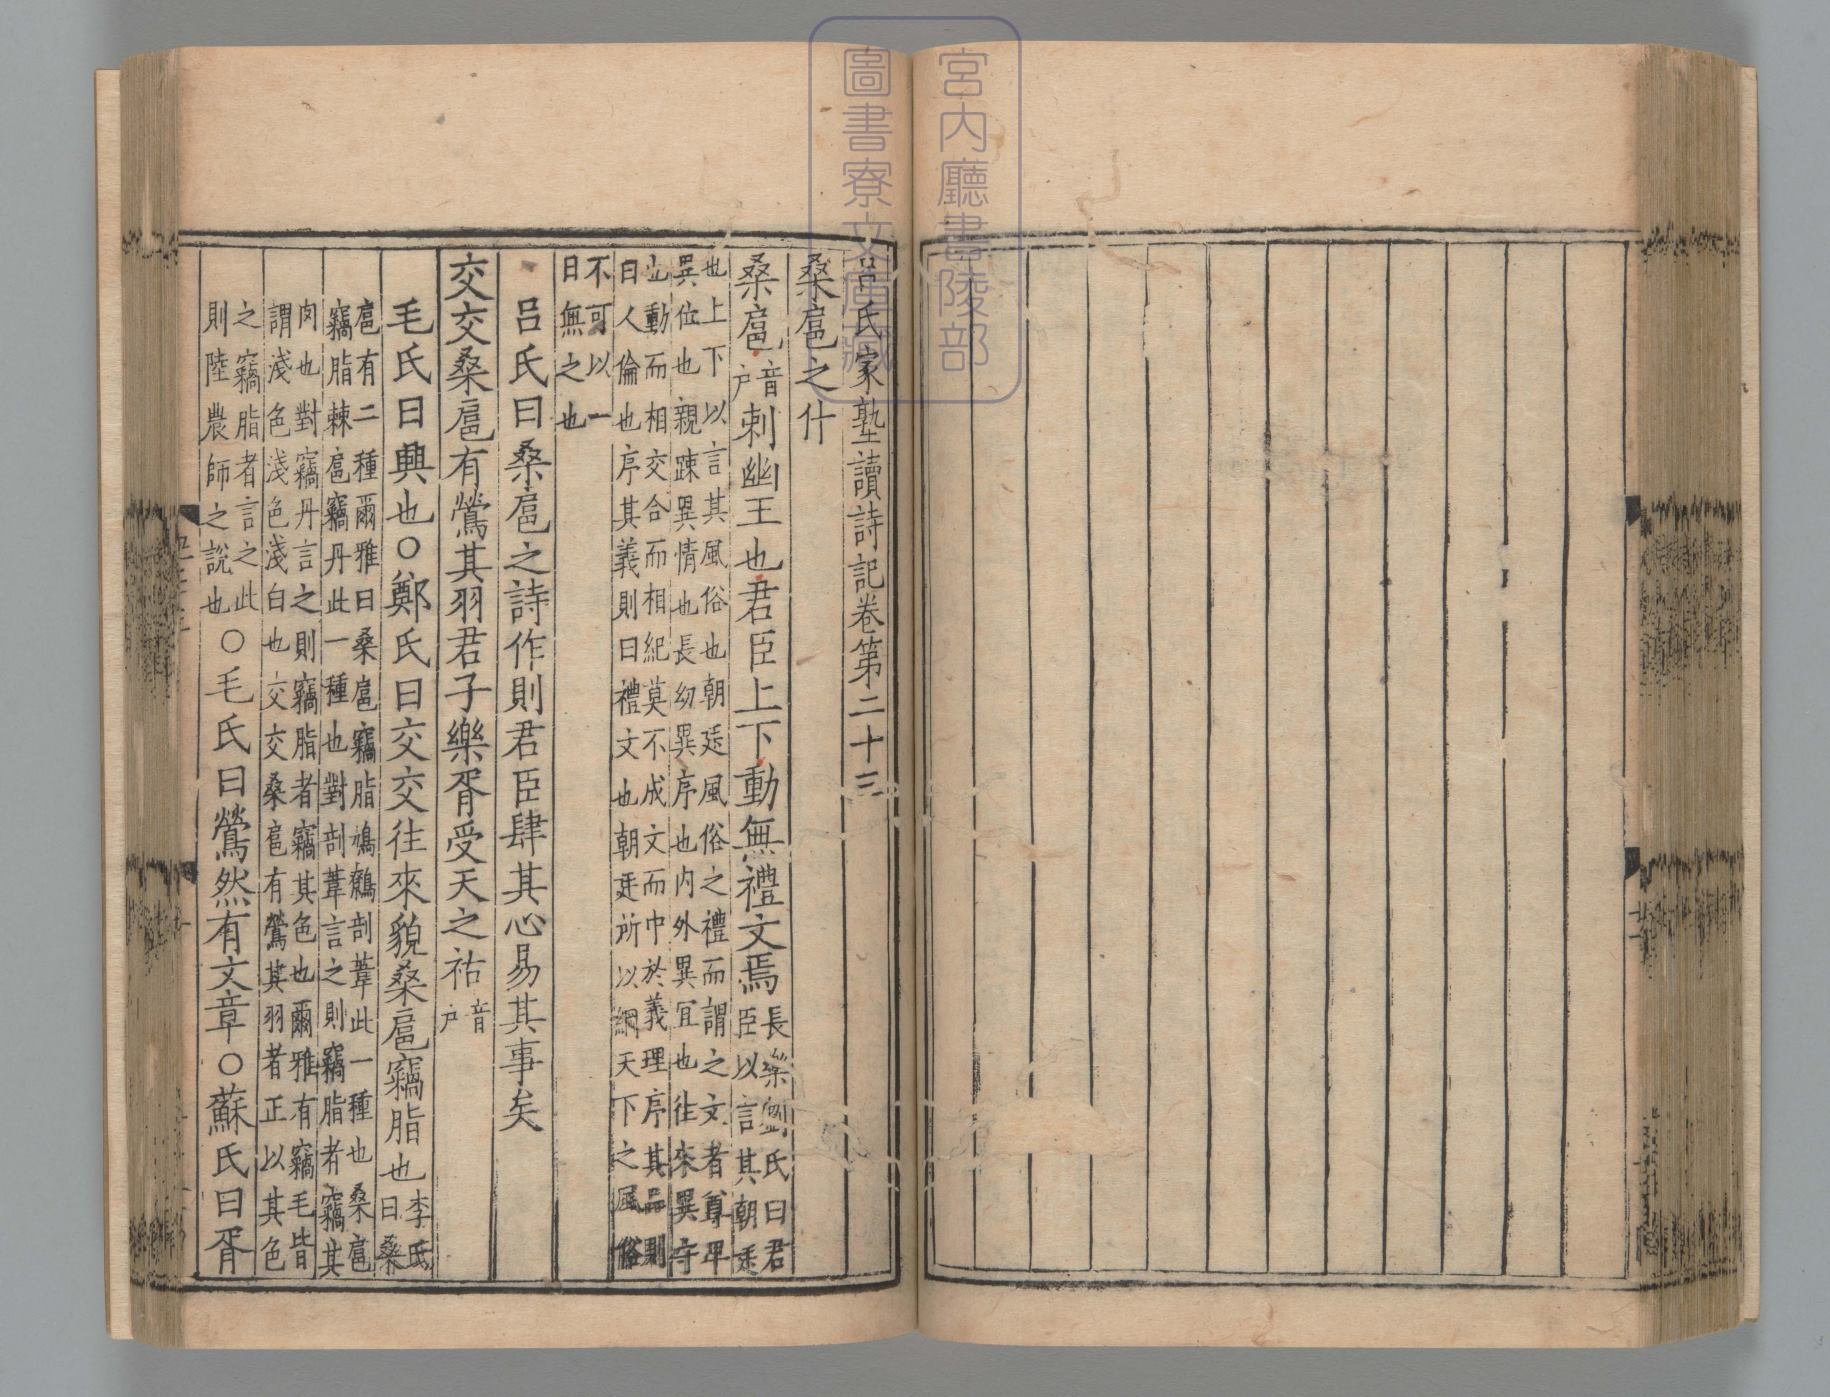 宮内廳書陵部
圖書寮文庫藏
呂氏家塾讀詩記卷第二十三
桑扈之什
桑扈音户刺幽王也君臣上下動無禮文焉長樂劉氏曰君
臣以言其朝廷
也上下以言其風俗也朝廷風俗之禮而謂之文者尊卑
異位也親踈異情也長幼異序也内外異宜也往來異守
也動而相交合而相紀莫不成文而中於義理序其品則
曰人倫也序其義則曰禮文也朝廷所以綱天下之風俗
不可以一
日無之也
呂氏曰桑扈之詩作則君臣肆其心易其事矣
交交桑扈有鶯其羽君子樂胥受天之祜音户
毛氏曰興也○鄭氏曰交交往來貌桑扈竊脂也李氏
曰桑
扈有二種爾雅曰桑扈竊脂鳭鷯剖葦此一種也桑扈
竊脂棘扈竊丹此一種也對剖葦言之則竊脂者竊其
肉也對竊丹言之則竊脂者竊其色也爾雅有竊毛皆
謂淺色淺色淺白也交交桑扈有鶯其羽者正以其色
之竊脂者言之此
則陸農師之說也○毛氏曰鶯然有文章○蘇氏曰胥